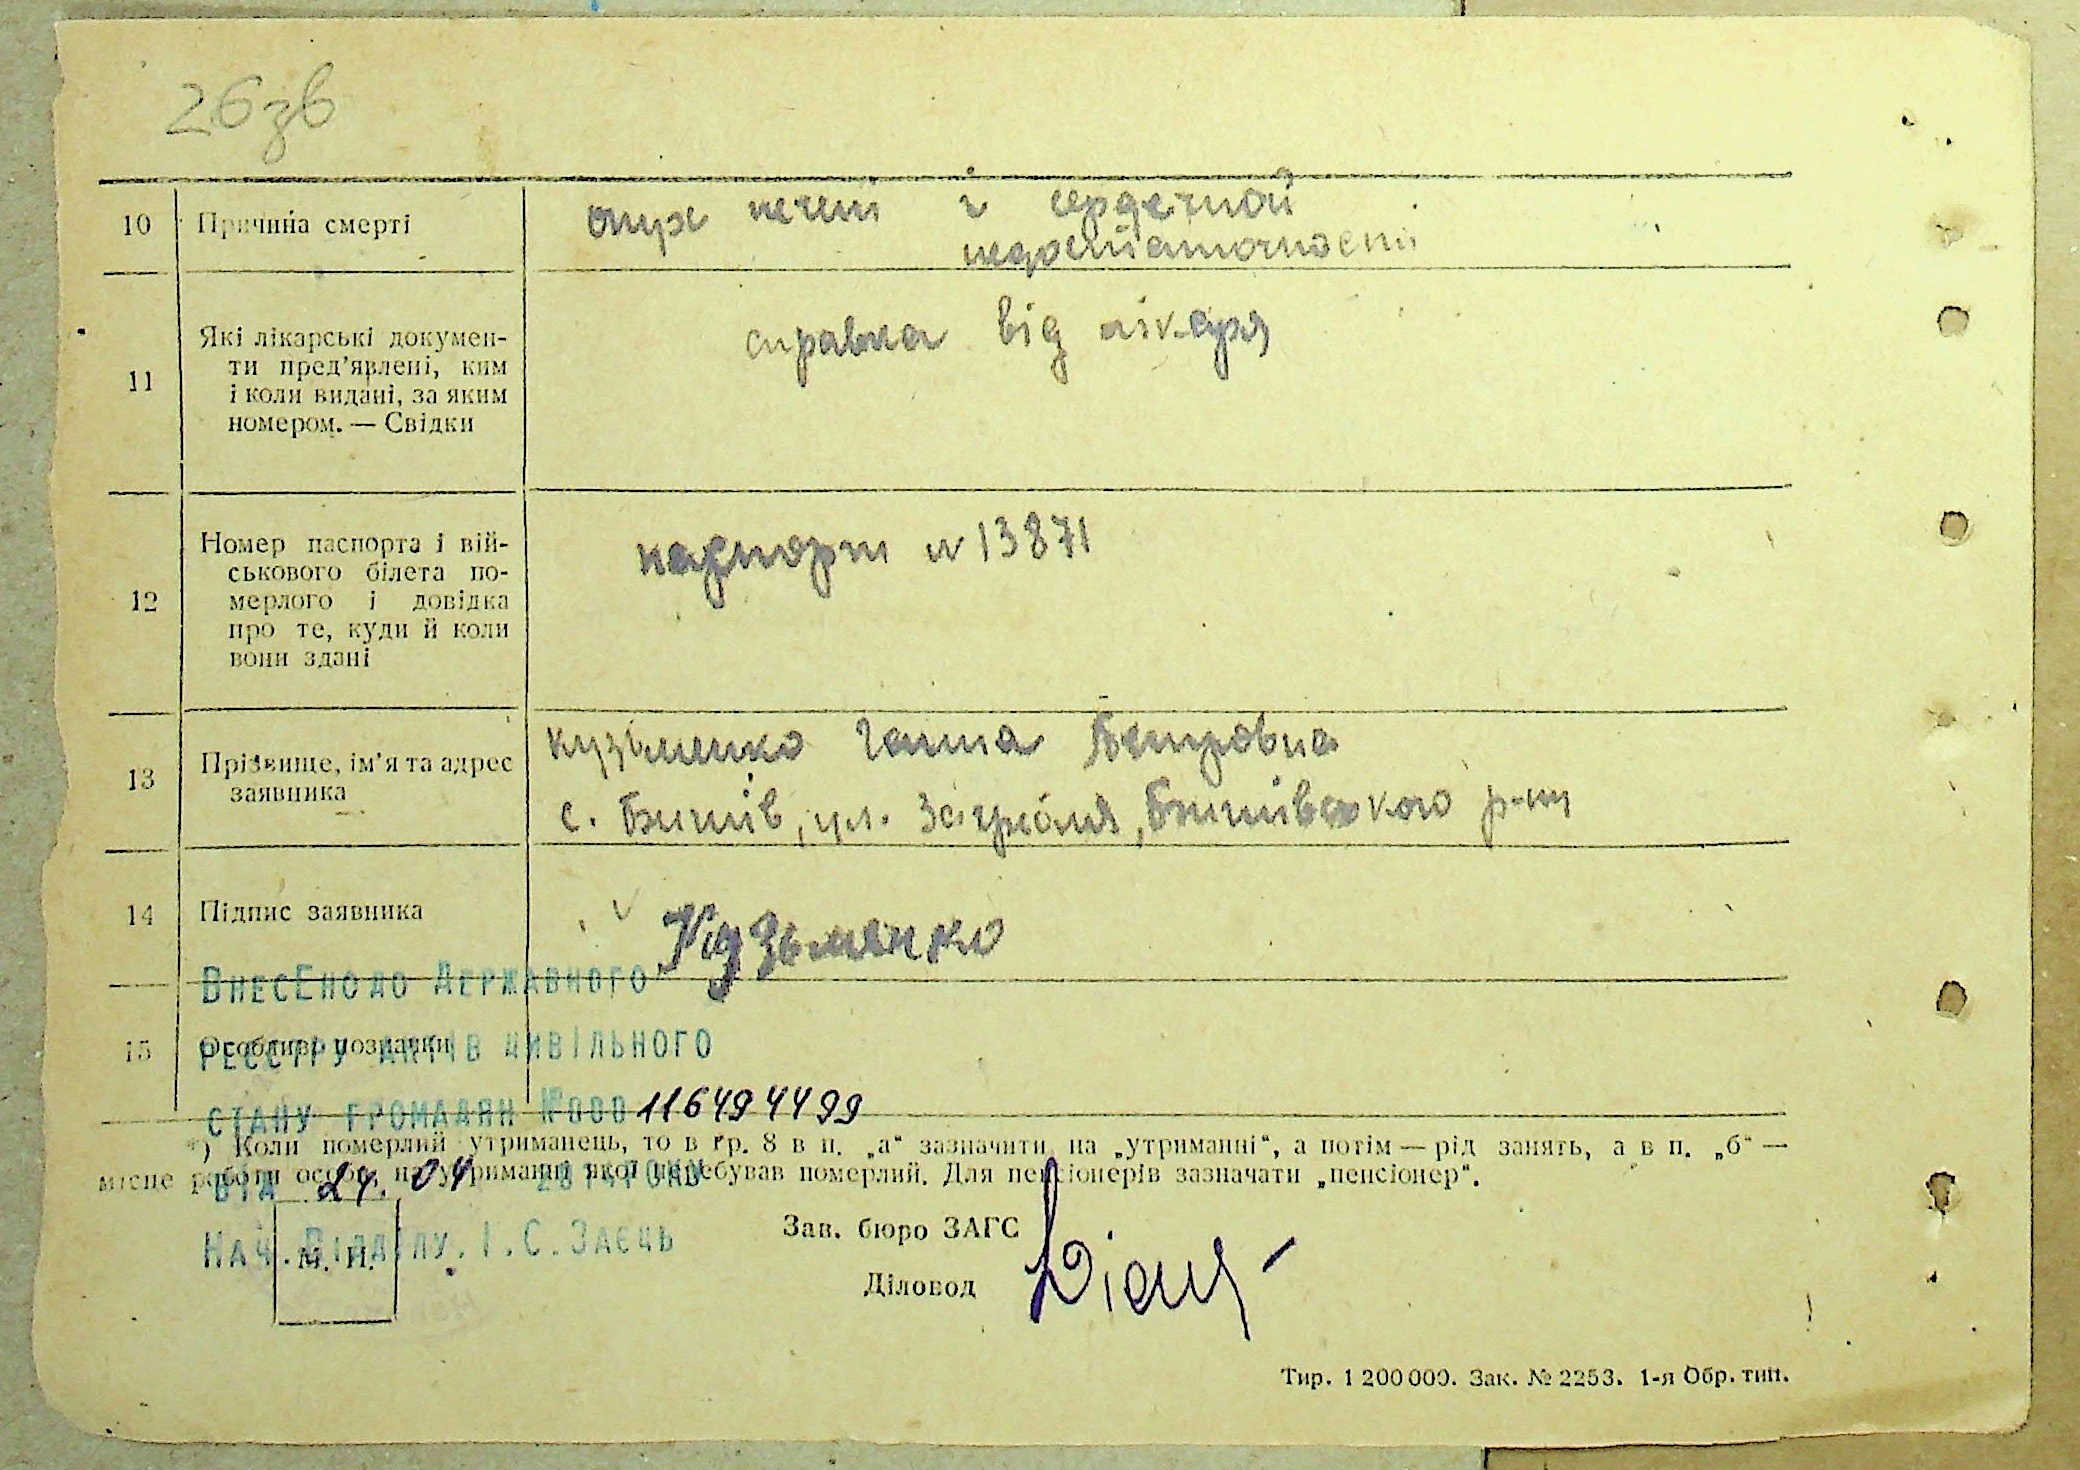 26зв
10 Причина смерті
опух печені і сердечной
недостаточности
11 Які лікарські докумен-
ти пред'явлені, ким
і коли видані, за яким
номером. — Свідки
справка від лікаря
12 Номер паспорта і вій-
ськового білета по-
мерлого і довідка
про те, куди й коли
вони здані
паспорт №13871
13 Прізвище, ім'я та адрес
заявника
Кузьменко Ганна Петровна
с. Бишів, ул. Бишівського р-ну
14 Підпис заявника
Кузьменко
ВнесЕно до Державного
15 Особливі позначки
реєстру актів цивільного
стану громадян №000 1164944 99
*) Коли померлий утриманець, то в гр. 8 в п. „а“ зазначити на „утриманні“, а потім — рід занять, а в п. „б“ —
місце роботи особи, на утриманні якої перебував померлий. Для пенсіонерів зазначати „пенсіонер“.
від 24. 04 року
Нач. Відділу. І. С. Заєць
М. П.
Зав. бюро ЗАГС
Діловод
Тир. 1 200 000. Зак. № 2253. 1-я Обр. тип.